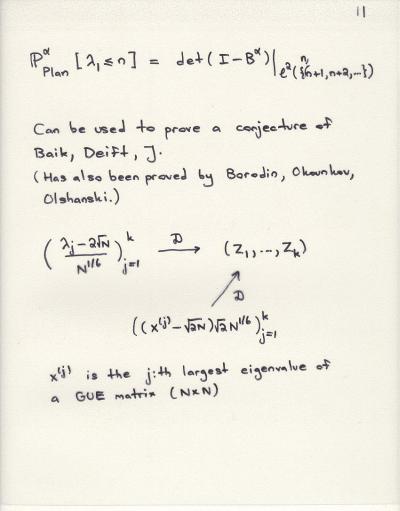 11
ℙ^α_Plan [λ₁ ≤ n] = det(I − B^α)|_{ℓ²({n+1, n+2, ...})}
Can be used to prove a conjecture of
Baik, Deift, J.
(Has also been proved by Borodin, Okounkov,
Olshanski.)
((λ_j − 2√N)/N^{1/6})^k_{j=1} —D→ (Z₁, ..., Z_k)
↗ D
((x^{(j)} − √2N)√2 N^{1/6})^k_{j=1}
x^{(j)} is the j:th largest eigenvalue of
a GUE matrix (N×N)